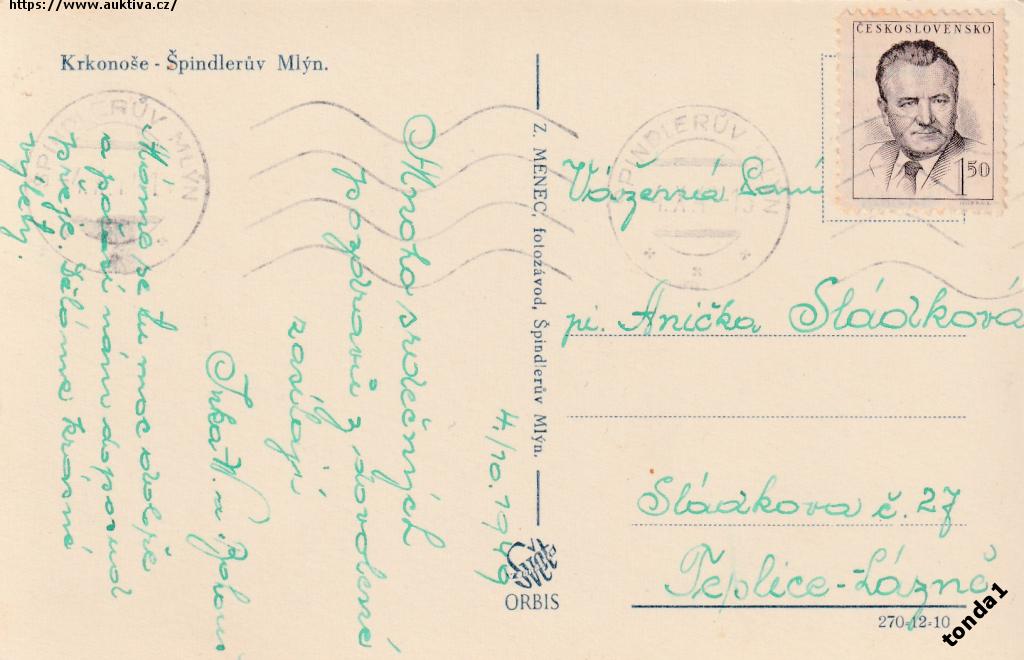 https://www.auktiva.cz/
Krkonoše - Špindlerův Mlýn.
ČESKOSLOVENSKO
1 50
ŠPINDLERŮV MLÝN
ŠPINDLERŮV MLÝN
4./10.1949
Mnoho srdečných
pozdravů z dovolené
zasílají
Inka V. a
Máme se tu moc dobře
a počasí nám doposud
přeje. Děláme krásné
výlety.
Z. MENEC, fotozávod, Špindlerův Mlýn.
ORBIS
Vážená Paní
pí. Anička Sládková
Sládkova č. 27
Teplice-Lázně
270-12-10
tonda1